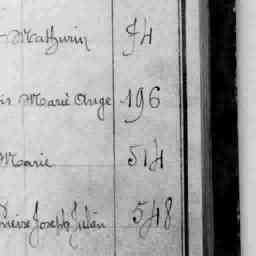 Mathurin 74
Marie Ange 196
Marie 514
Pierre Joseph Julien 548